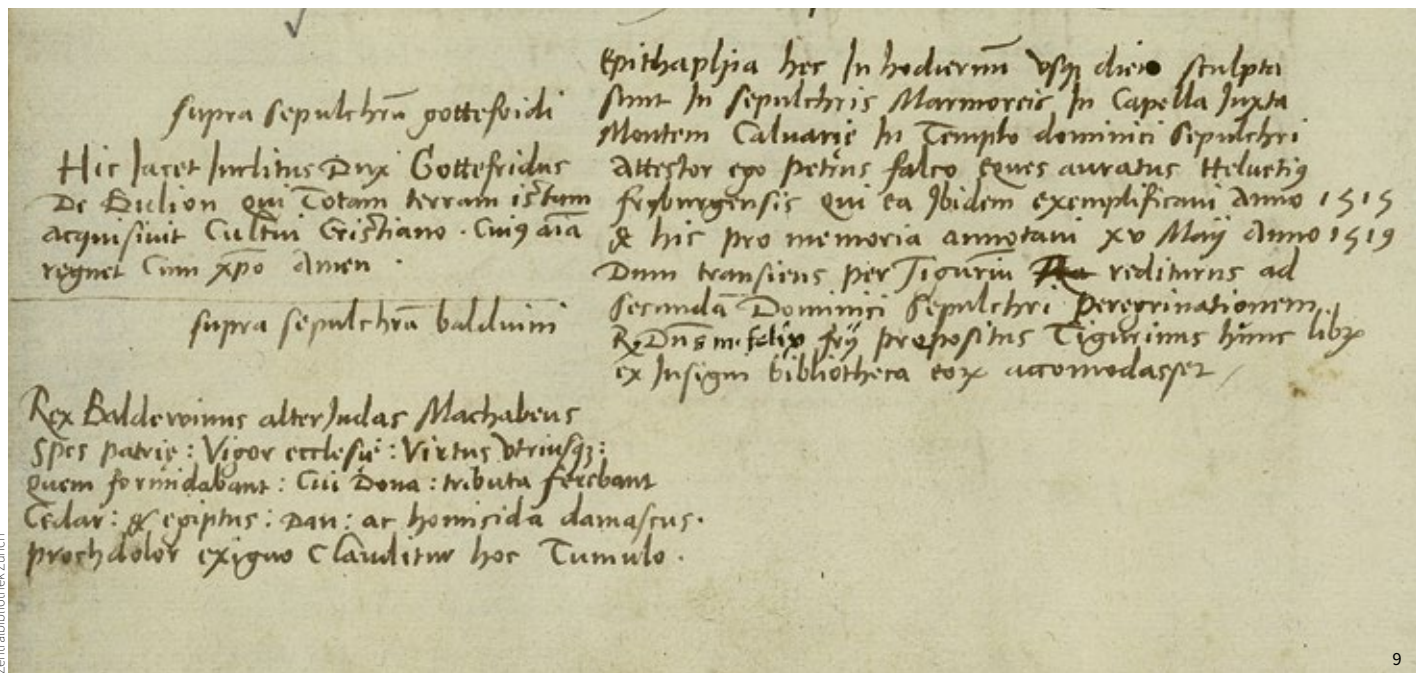 supra sepulchrū gottefridi
Hic Jacet Inclitus Dux Gottefridus
De Bulion qui Totam terram istam
acquisiuit Cultui Cristiano · Cuiꝯ aīa
regnet Cum xp̄o Amen ·
supra sepulchrū balduini
Rex Baldewinus alter Judas Machabeus
Spes patrię : Vigor ecclesię : Virtus vtriusqꝫ :
quem formidabant : Cui Dona : tributa ferebant
Cedar : & egiptus : Dan : ac homicida damascus ·
proch dolor exiguo Clauditur hoc Tumulo ·
Epithaphia hec In hodiernū vsqꝫ diem sculpta
sunt In sepulchris Marmoreis In Capella Juxta
Montem Caluarię In Templo dominici sepulchri
Attestor ego Petrus falco Eques auratus Heluetiꝯ
fryburgensis qui ea Ibidem exemplificaui Anno 1515
& hic pro memoria annotaui xv Maij Anno 1519
Dum transiens per Tigurim rediturus ad
secundā Dominici Sepulchri peregrinationem
R. Dn̄s m. felix fry prepositus Tigurinus hunc libꝝ
ex Insigni bibliotheca eoꝝ accomodasset
Zentralbibliothek Zürich
9